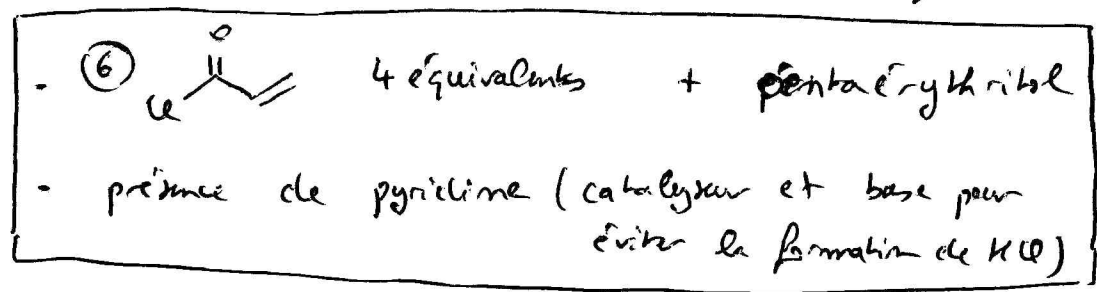 - ⑥ Cl O 4 équivalents + pentaérythritol
- présence de pyridine (catalyseur et base pour
éviter la formation de HCl)